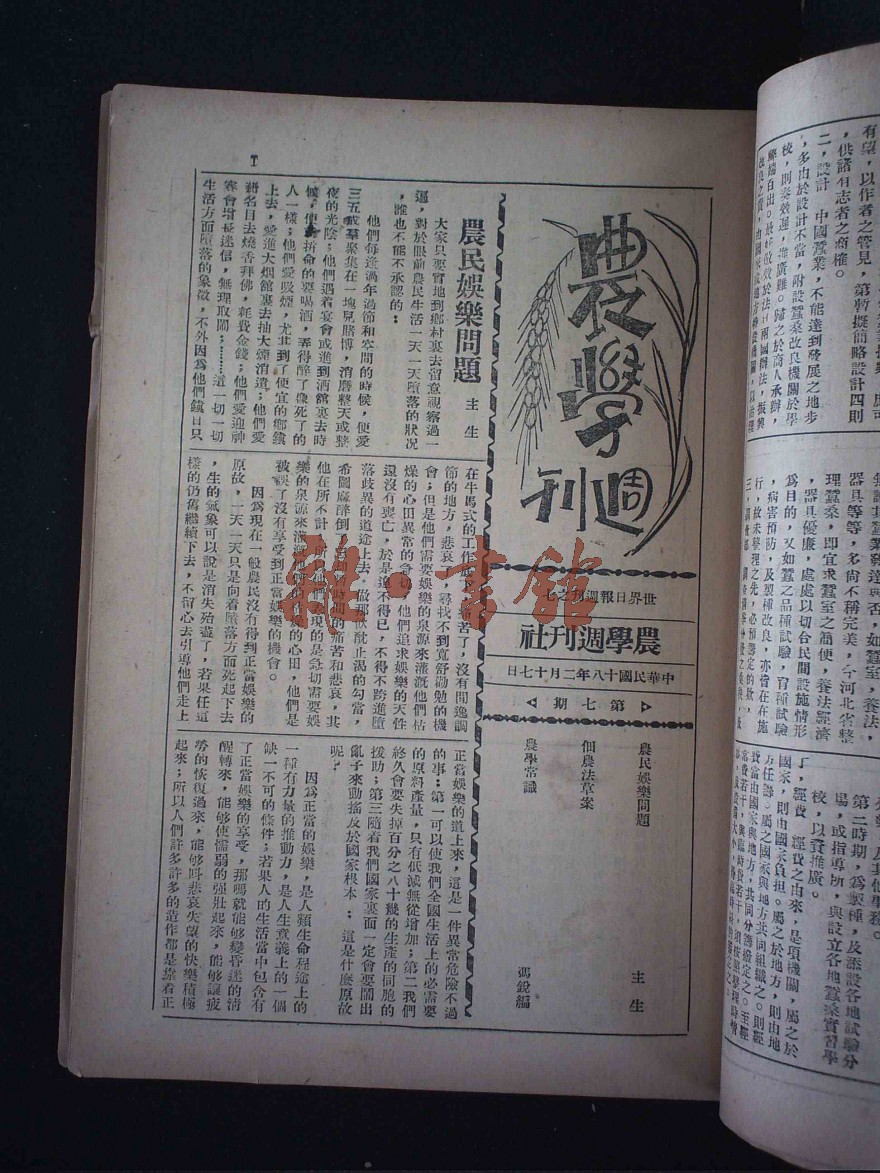 農學
週刊
世界日報週刊之七
農學週刊社
中華民國十八年二月十七日
第七期
農民娛樂問題 主生
佃農法草案
農學常識 馮銳編
農民娛樂問題
主生
大家只要實地到鄉村裏去留意視察過一
遍，對於眼前農民生活一天一天墮落的狀況
，誰也不能不承認的：
他們每逢過年過節和空閒的時候，便愛
三五成羣聚集在一塊兒賭博，消磨整天或整
夜的光陰；他們遇着宴會或進到酒館裏去時
候，便拚命的要喝酒，弄得醉了像死了的
人一樣；他們愛吸煙，尤其到了便宜的鄉鎮
上去，愛進大烟館裏去抽大煙消遣；他們愛
藉名目去燒香拜佛，耗費金錢；他們愛迎神
賽會增長迷信，無理取鬧；……這一切一切
生活方面墮落的象徵，不外因爲他們鎮日只
在牛馬式的工作底下 痛苦了，沒有閒逸調
節的地方，悲哀 尋找不到寬舒勸勉的機
會；但是他們需要娛樂的泉源來灌溉他們枯
燥的心田異常的急切 他們追求娛樂的天性
還沒有喪亡，於是迫不得已，不得不跨進墮
落歧異的道途上去，做那飲鴆止渴的勾當，
希圖麻醉倒 時間的痛苦和悲哀，其
他在所不計 所 他們表現的是急切需要娛
樂的泉源來灌溉他們的 的心田，他們是
被誤了沒有享受到正當娛樂的機會。
因爲現在一般農民沒有得到正當娛樂的
原故，一天一天只是向着墮落方面死起下去
，生的氣象可以說是消失殆盡了，若果任這
樣的仍舊繼續下去，不留心去引導他們走上
正當娛樂的道上來，這是一件異常危險不過
的事：第一可以使我們全國生活上的必需要
的原料產量，只有低減無從增加；第二我們
終久會要失掉百分之八十幾的生產的同胞的
援助；第三隨着我們國家裏面一定會要鬧出
亂子來動搖及於國家根本；這是什麼原故
呢？
因爲正當的娛樂，是人類生命程途上的
一種有力量的推動力，是人生意義上的一個
缺一不可的條件；若果人的生活當中包含有
了正當娛樂的享受，那嗎就能够變昏迷的清
醒轉來，能够使懦弱的强壯起來，能够讓疲
勞的恢復過來，能够叫悲哀失望的快樂積極
起來；所以人們許多許多的造作都是靠着正
有望，以作者之管見，第暫擬簡略設計四則
，供諸有志者之商榷。
二，設計 中國蠶業，不能達到發展之地步
，多由於設計不當，附設蠶桑改良機關於學
校，則奏效遲，推廣難。歸之於商人承辦，
器具等等，多尚不稱完美，今河北省整
理蠶桑，即宜求蠶室之簡便，養法經濟
，器具優廉，處處以切合民間設施情形
爲目的，又如蠶之品種試驗，育種試驗
，病害預防，及製種改良，亦皆在在施
第二時期，爲製種，及添設各地試驗分
場，或指導所，與設立各地蠶桑實習學
校，以資推廣。
了，經費 經費之由來，是項機關，屬之於
國家，則由國家負担。屬之於地方，則由地